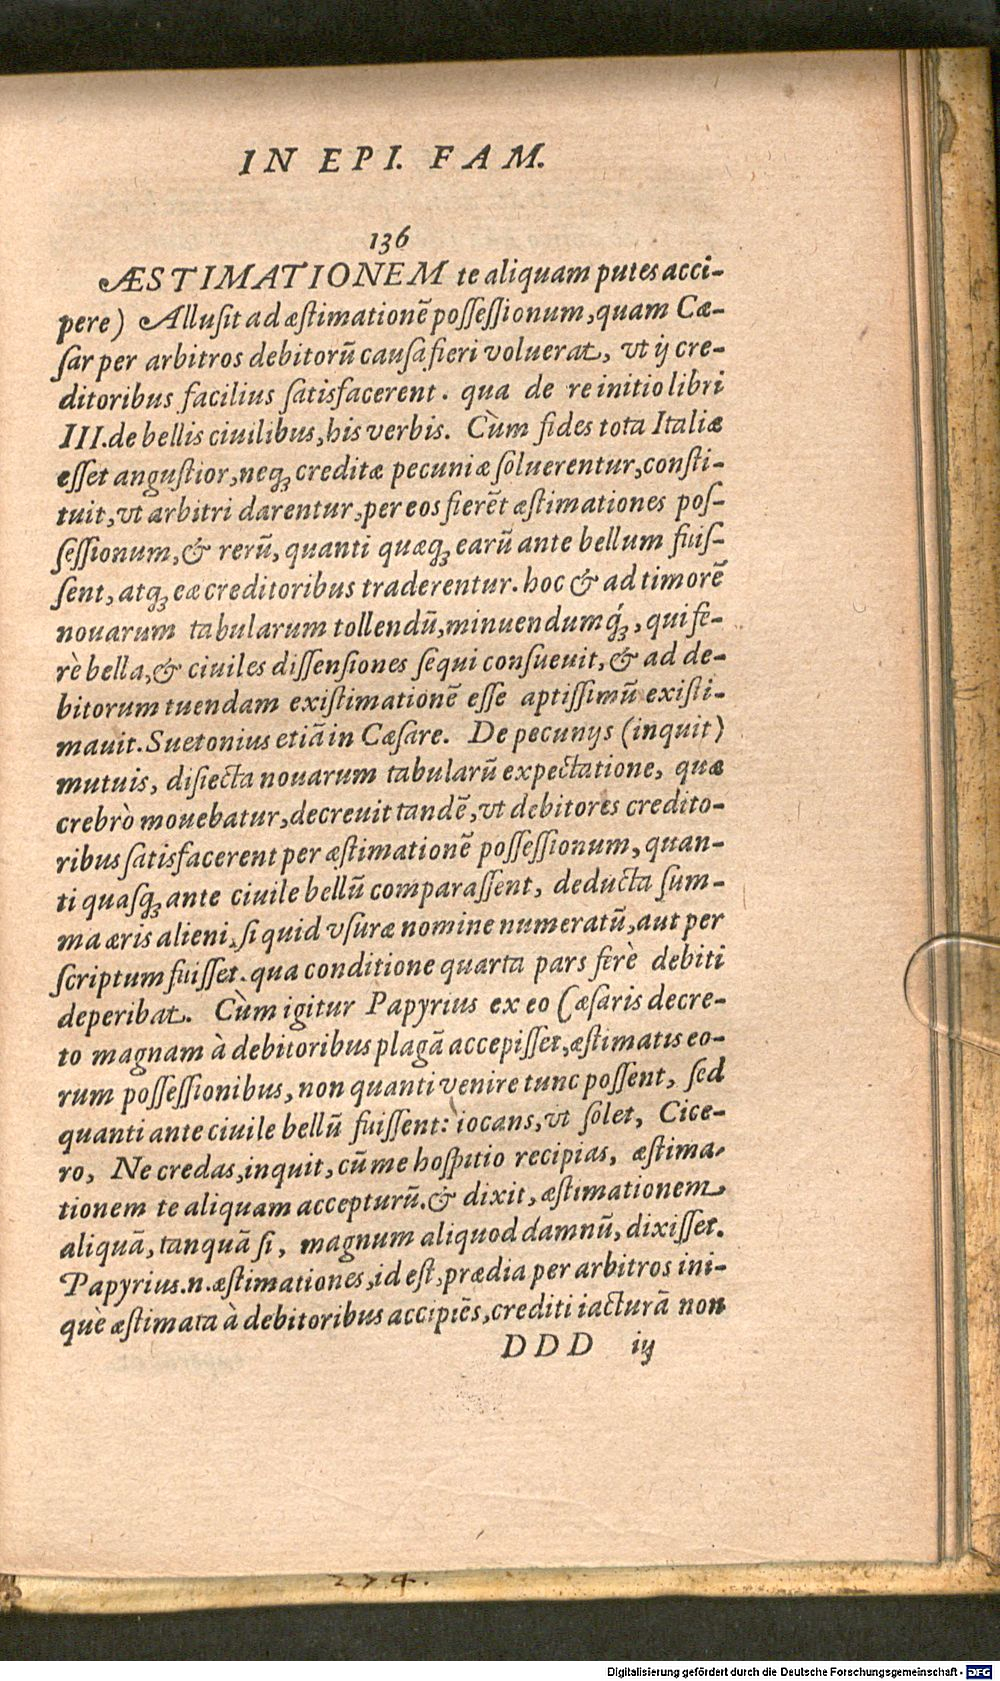 IN EPI. FAM.
136
ÆSTIMATIONEM te aliquam putes acci-
pere) Allusit ad æstimationē possessionum, quam Cæ-
sar per arbitros debitorū causa fieri voluerat, vt ij cre-
ditoribus facilius satisfacerent. qua de re initio libri
III. de bellis ciuilibus, his verbis. Cùm fides tota Italiæ
esset angustior, neq; creditæ pecuniæ soluerentur, consti-
tuit, vt arbitri darentur, per eos fierēt æstimationes pos-
sessionum, & rerū, quanti quæq; earū ante bellum fuis-
sent, atq; eæ creditoribus traderentur. hoc & ad timorē
nouarum tabularum tollendū, minuendumq́;, qui fe-
rè bella, & ciuiles dissensiones sequi consueuit, & ad de-
bitorum tuendam existimationē esse aptissimū existi-
mauit. Suetonius etiā in Cæsare. De pecunijs (inquit)
mutuis, disiecta nouarum tabularū expectatione, quæ
crebrò mouebatur, decreuit tandē, vt debitores credito-
ribus satisfacerent per æstimationē possessionum, quan-
ti quasq; ante ciuile bellū comparassent, deducta sum-
ma æris alieni, si quid vsuræ nomine numeratū, aut per
scriptum fuisset. qua conditione quarta pars ferè debiti
deperibat. Cùm igitur Papyrius ex eo Cæsaris decre-
to magnam à debitoribus plagā accepisset, æstimatis eo-
rum possessionibus, non quanti venire tunc possent, sed
quanti ante ciuile bellū fuissent: iocans, vt solet, Cice-
ro, Ne credas, inquit, cū me hospitio recipias, æstima-
tionem te aliquam accepturū. & dixit, æstimationem
aliquā, tanquā si, magnum aliquod damnū, dixisset.
Papyrius .n. æstimationes, id est, prædia per arbitros ini-
què æstimata à debitoribus accipiēs, crediti iacturā non
DDD iij
274.
Digitalisierung gefördert durch die Deutsche Forschungsgemeinschaft - DFG